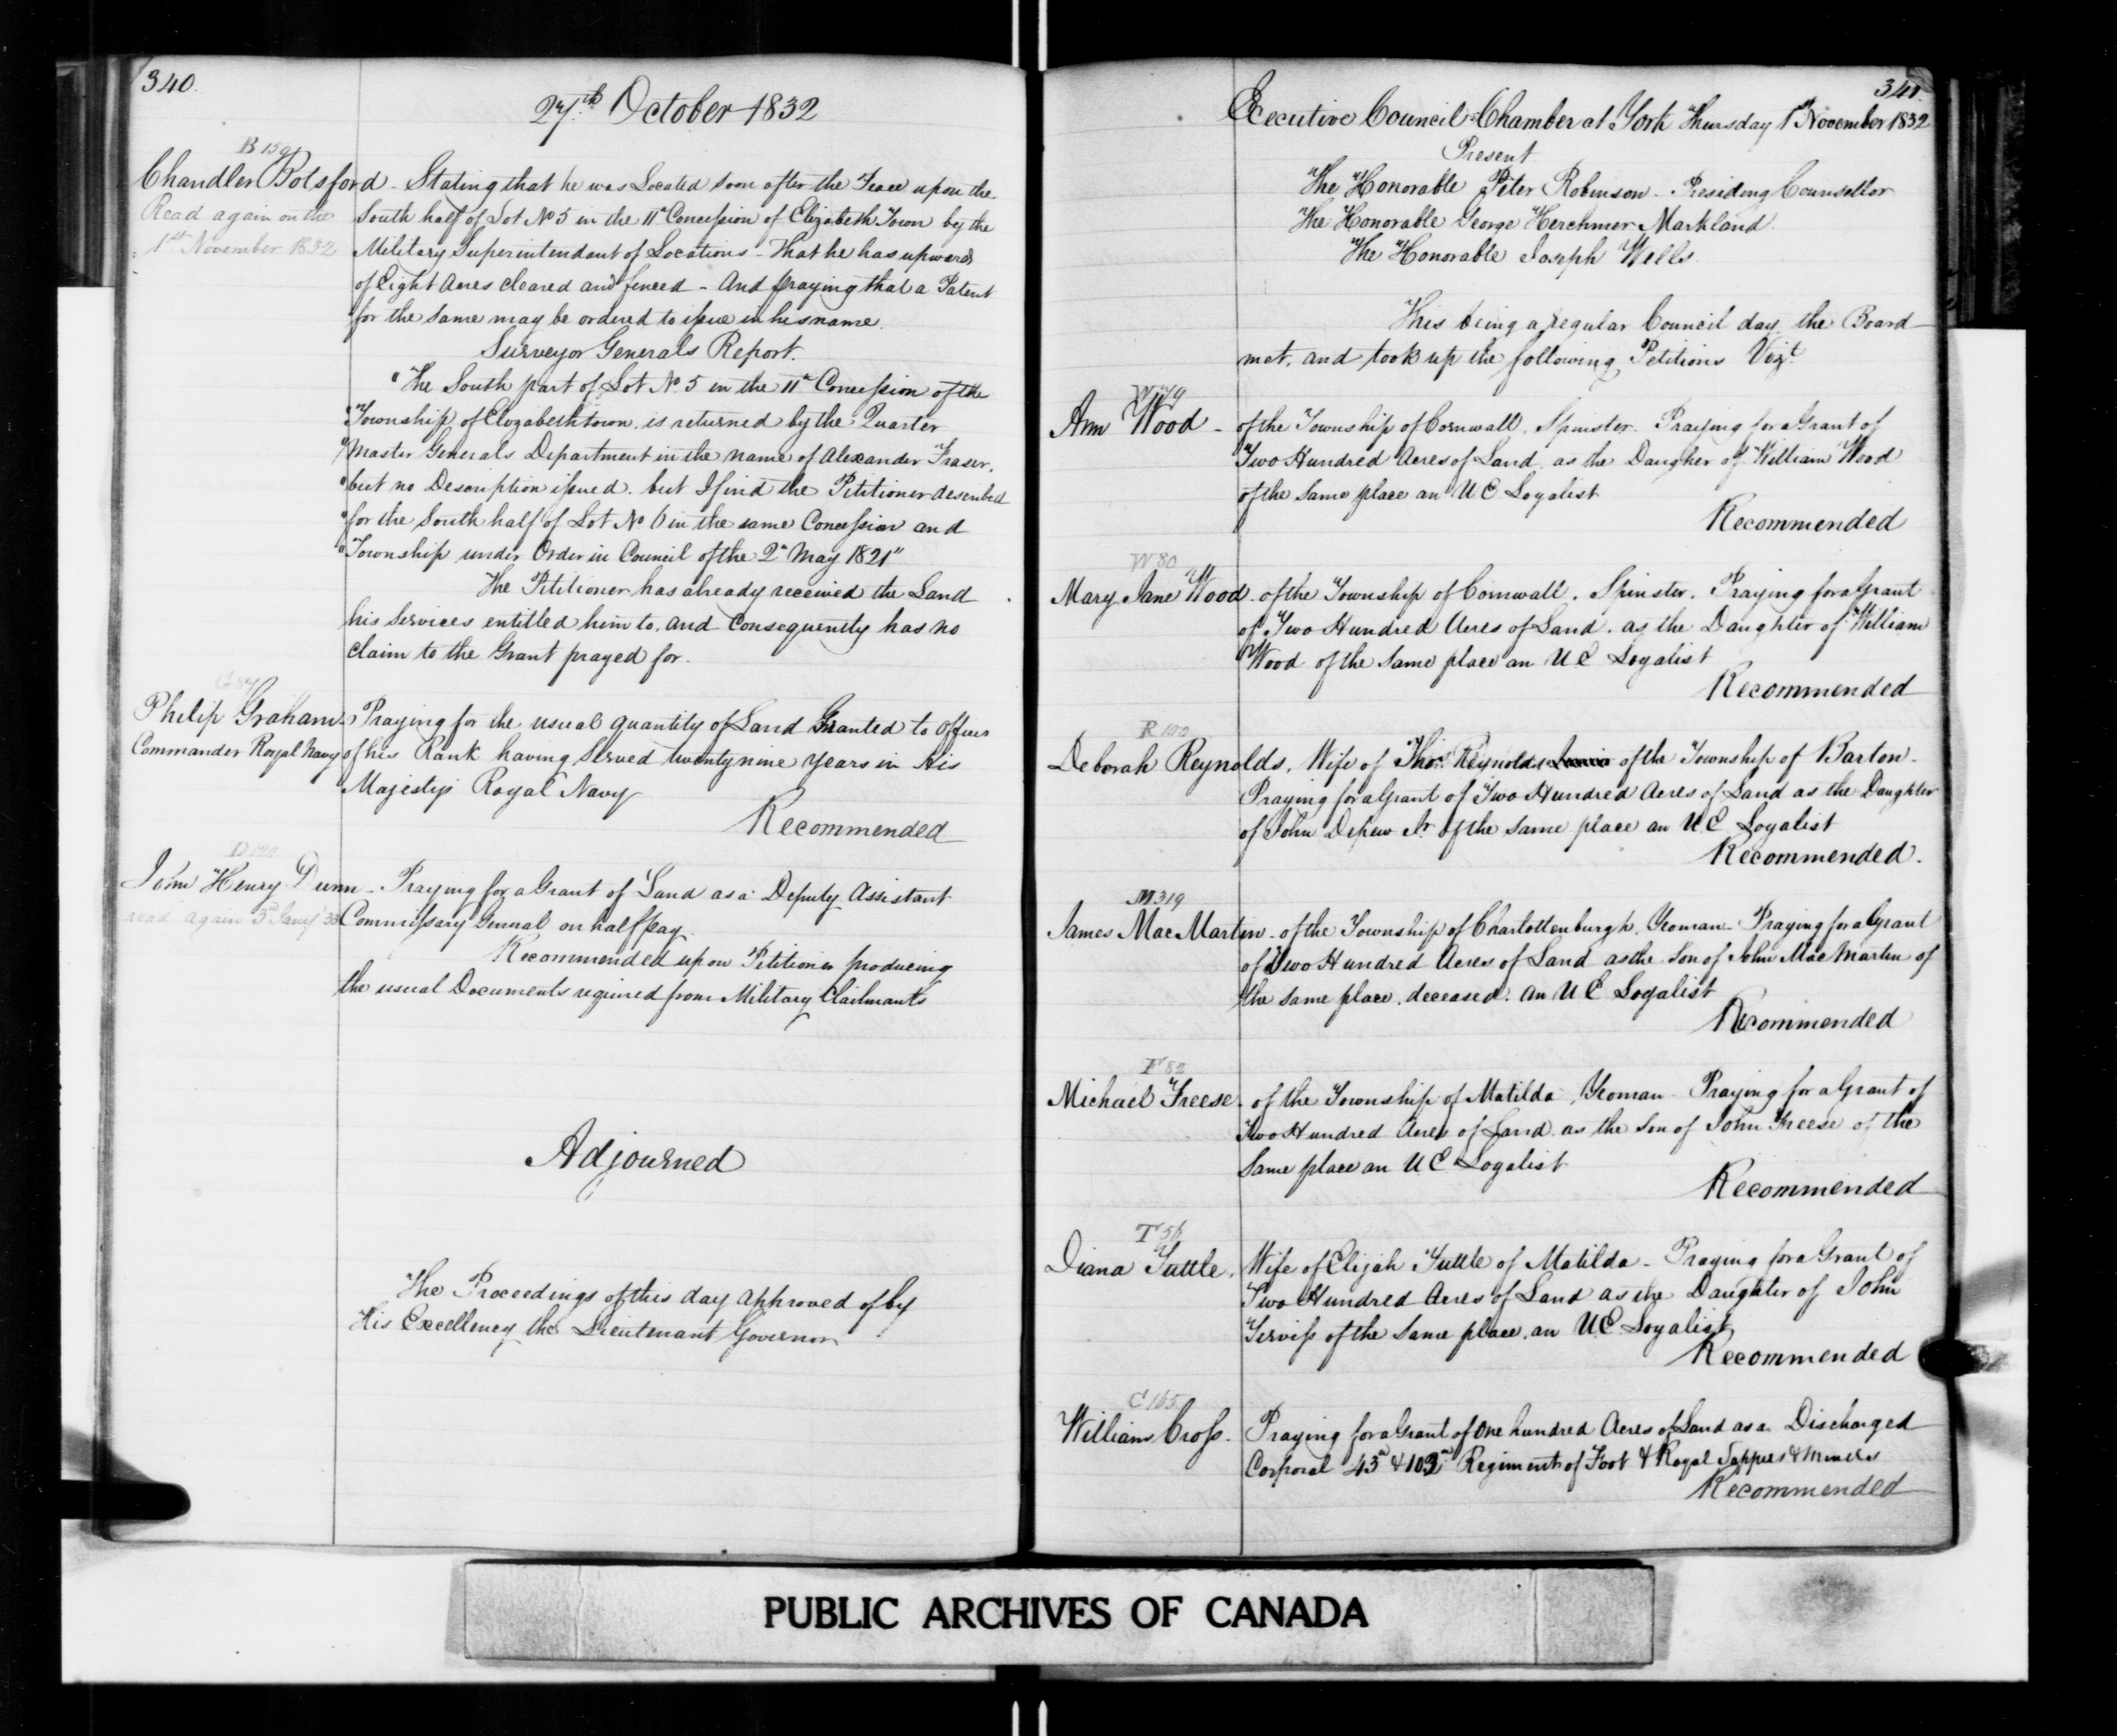 340.
27th October 1832
B 159
Chandler Botsford - Stating that he was Located soon after the Peace upon the
Read again on the
1st November 1832
South half of Lot No 5 in the 11th Concession of Elizabeth Town by the
Military Superintendant of Locations - That he has upwards
of Eight Acres cleared and fenced - And praying that a Patent
for the same may be ordered to issue in his name.
Surveyor Generals Report.
"The South part of Lot No. 5 in the 11th Concession of the
"Township of Elizabethtown, is returned by the Quarter
"Master Generals Department in the name of Alexander Fraser,
"but no Description issued. but I find the Petitioner described
"for the South half of Lot No 6 in the same Concession and
"Township under Order in Council of the 2d May 1821"
The Petitioner has already received the Land
his services entitled him to. and Consequently has no
claim to the Grant prayed for.
G 84
Philip Graham. Praying for the usual quantity of Land Granted to Officers
Commander Royal Navy of his Rank having Served twenty nine years in His
Majesty's Royal Navy
Recommended
John Henry Dunn - Praying for a Grant of Land as a Deputy Assistant
read again 3d Jany '33 Commissary General on half pay.
Recommended upon Petitioner producing
the usual Documents required from Military Claimants
Adjourned
The Proceedings of this day approved of by
His Excellency the Lieutenant Governor
341.
Executive Council Chamber at York Thursday 1st November 1832
Present
The Honorable Peter Robinson - Presiding Counsellor
The Honorable George Herchmer Markland.
The Honorable Joseph Wells.
This being a regular Council day the Board
met, and took up the following Petitions Vizt
W 79
Ann Wood - of the Township of Cornwall, Spinster. Praying for a Grant of
Two Hundred Acres of Land, as the Daugher of William Wood
of the Same place an U E Loyalist
Recommended
W 80
Mary Jane Wood. of the Township of Cornwall. Spinster. Praying for a Grant
of Two Hundred Acres of Land. as the Daughter of William
Wood of the Same place an U E Loyalist
Recommended
R 100
Deborah Reynolds, Wife of Thos. Reynolds of the Township of Barton -
Praying for a Grant of Two Hundred Acres of Land as the Daughter
of John Depew Sr of the Same place an U E Loyalist
Recommended.
M 319
James MacMartin - of the Township of Charlottenburgh, Yeoman - Praying for a Grant
of Two Hundred Acres of Land as the Son of John MacMartin of
the same place, deceased. an U E Loyalist
Recommended
F 82
Michael Freese. of the Township of Matilda, Yeoman - Praying for a Grant of
Two Hundred Acres of Land as the Son of John Freese of the
Same place an U E Loyalist
Recommended
T 56
Diana Tuttle, Wife of Elijah Tuttle of Matilda - Praying for a Grant of
Two Hundred Acres of Land as the Daughter of John
Serviss of the Same place, an U E Loyalist,
Recommended
C 165
William Cross - Praying for a Grant of One hundred Acres of Land as a Discharged
Corporal 43d & 103d Regiments of Foot & Royal Sappers & Miners
Recommended
PUBLIC ARCHIVES OF CANADA